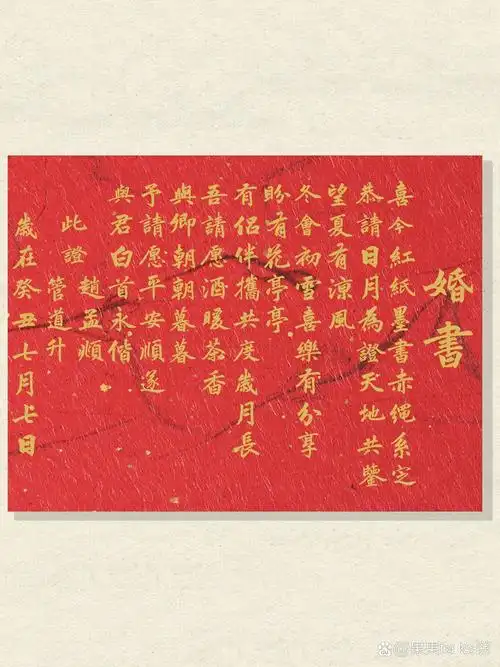 婚書
喜今紅紙墨書赤繩系定
恭請日月為證天地共鑒
望夏有涼風
冬會初雪喜樂有分享
盼有花亭亭
有侶伴攜共度歲月長
吾請愿酒暖茶香
與卿朝朝暮暮
予請愿平安順遂
與君白首永偕
此證
趙孟頫
管道升
歲在癸丑七月七日